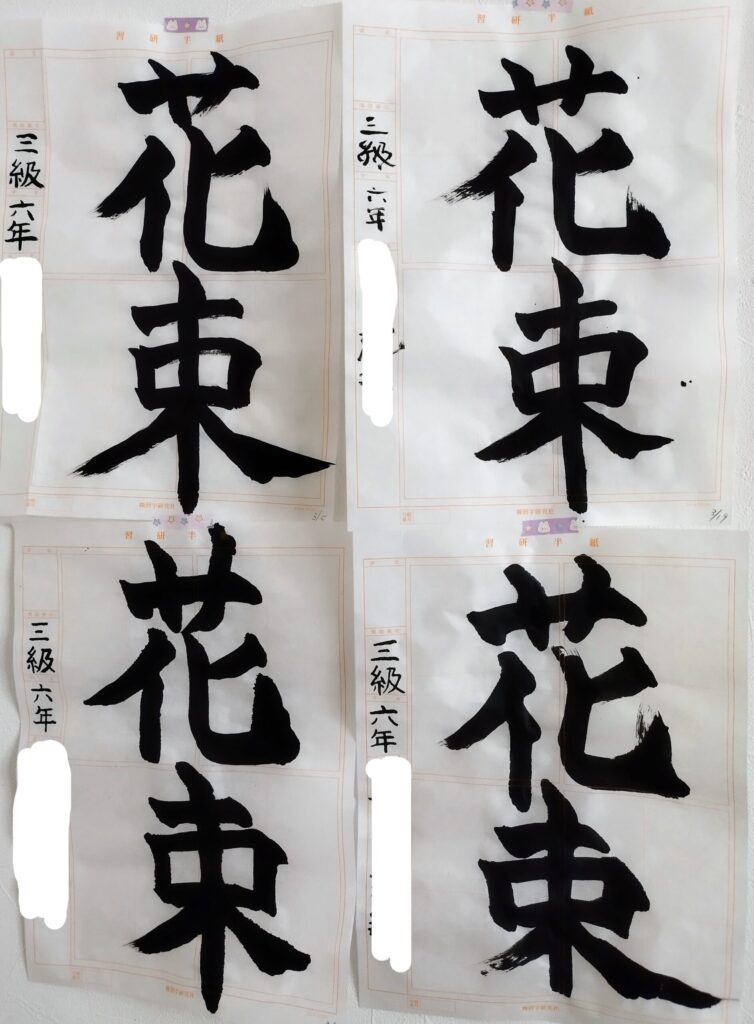 習研半紙
花束
三級 六年
3/5
習研半紙
花束
三級 六年
3/19
習研半紙
花束
三級 六年
習研半紙
花束
三級 六年